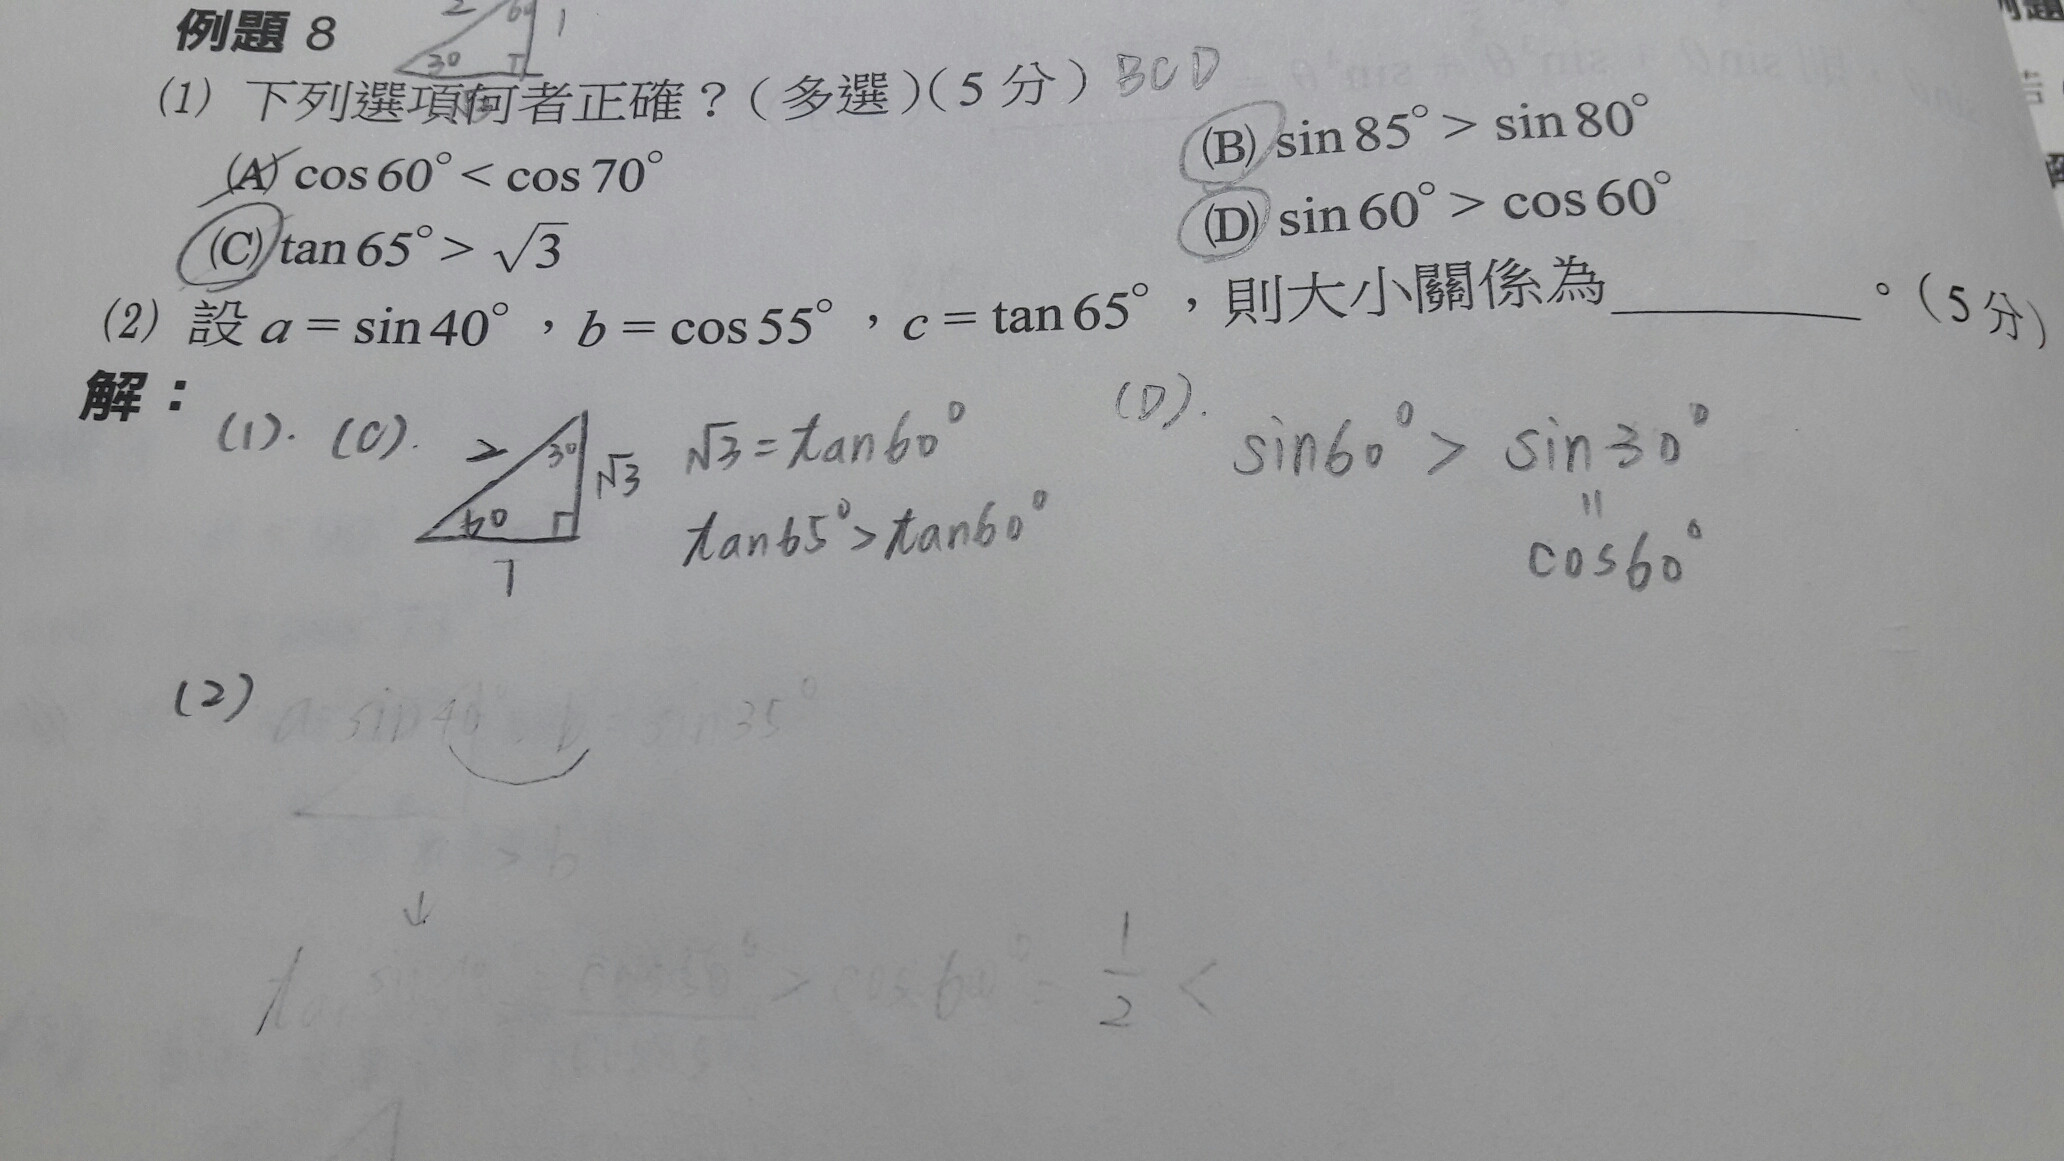 例題 8
2 60 1
30
(1) 下列選項何者正確？(多選)(5 分) BCD
(A) cos 60° < cos 70°
(B) sin 85° > sin 80°
(C) tan 65° > √3
(D) sin 60° > cos 60°
(2) 設 a = sin 40°，b = cos 55°，c = tan 65°，則大小關係為__________。(5 分)
解：
(1). (C).
2 30 √3
60
1
√3 = tan60°
tan65° > tan60°
(D).
sin60° > sin30°
"
cos60°
(2) a sin 40° b = sin 35°
> b
↓
> cos 60° = 1/2 <